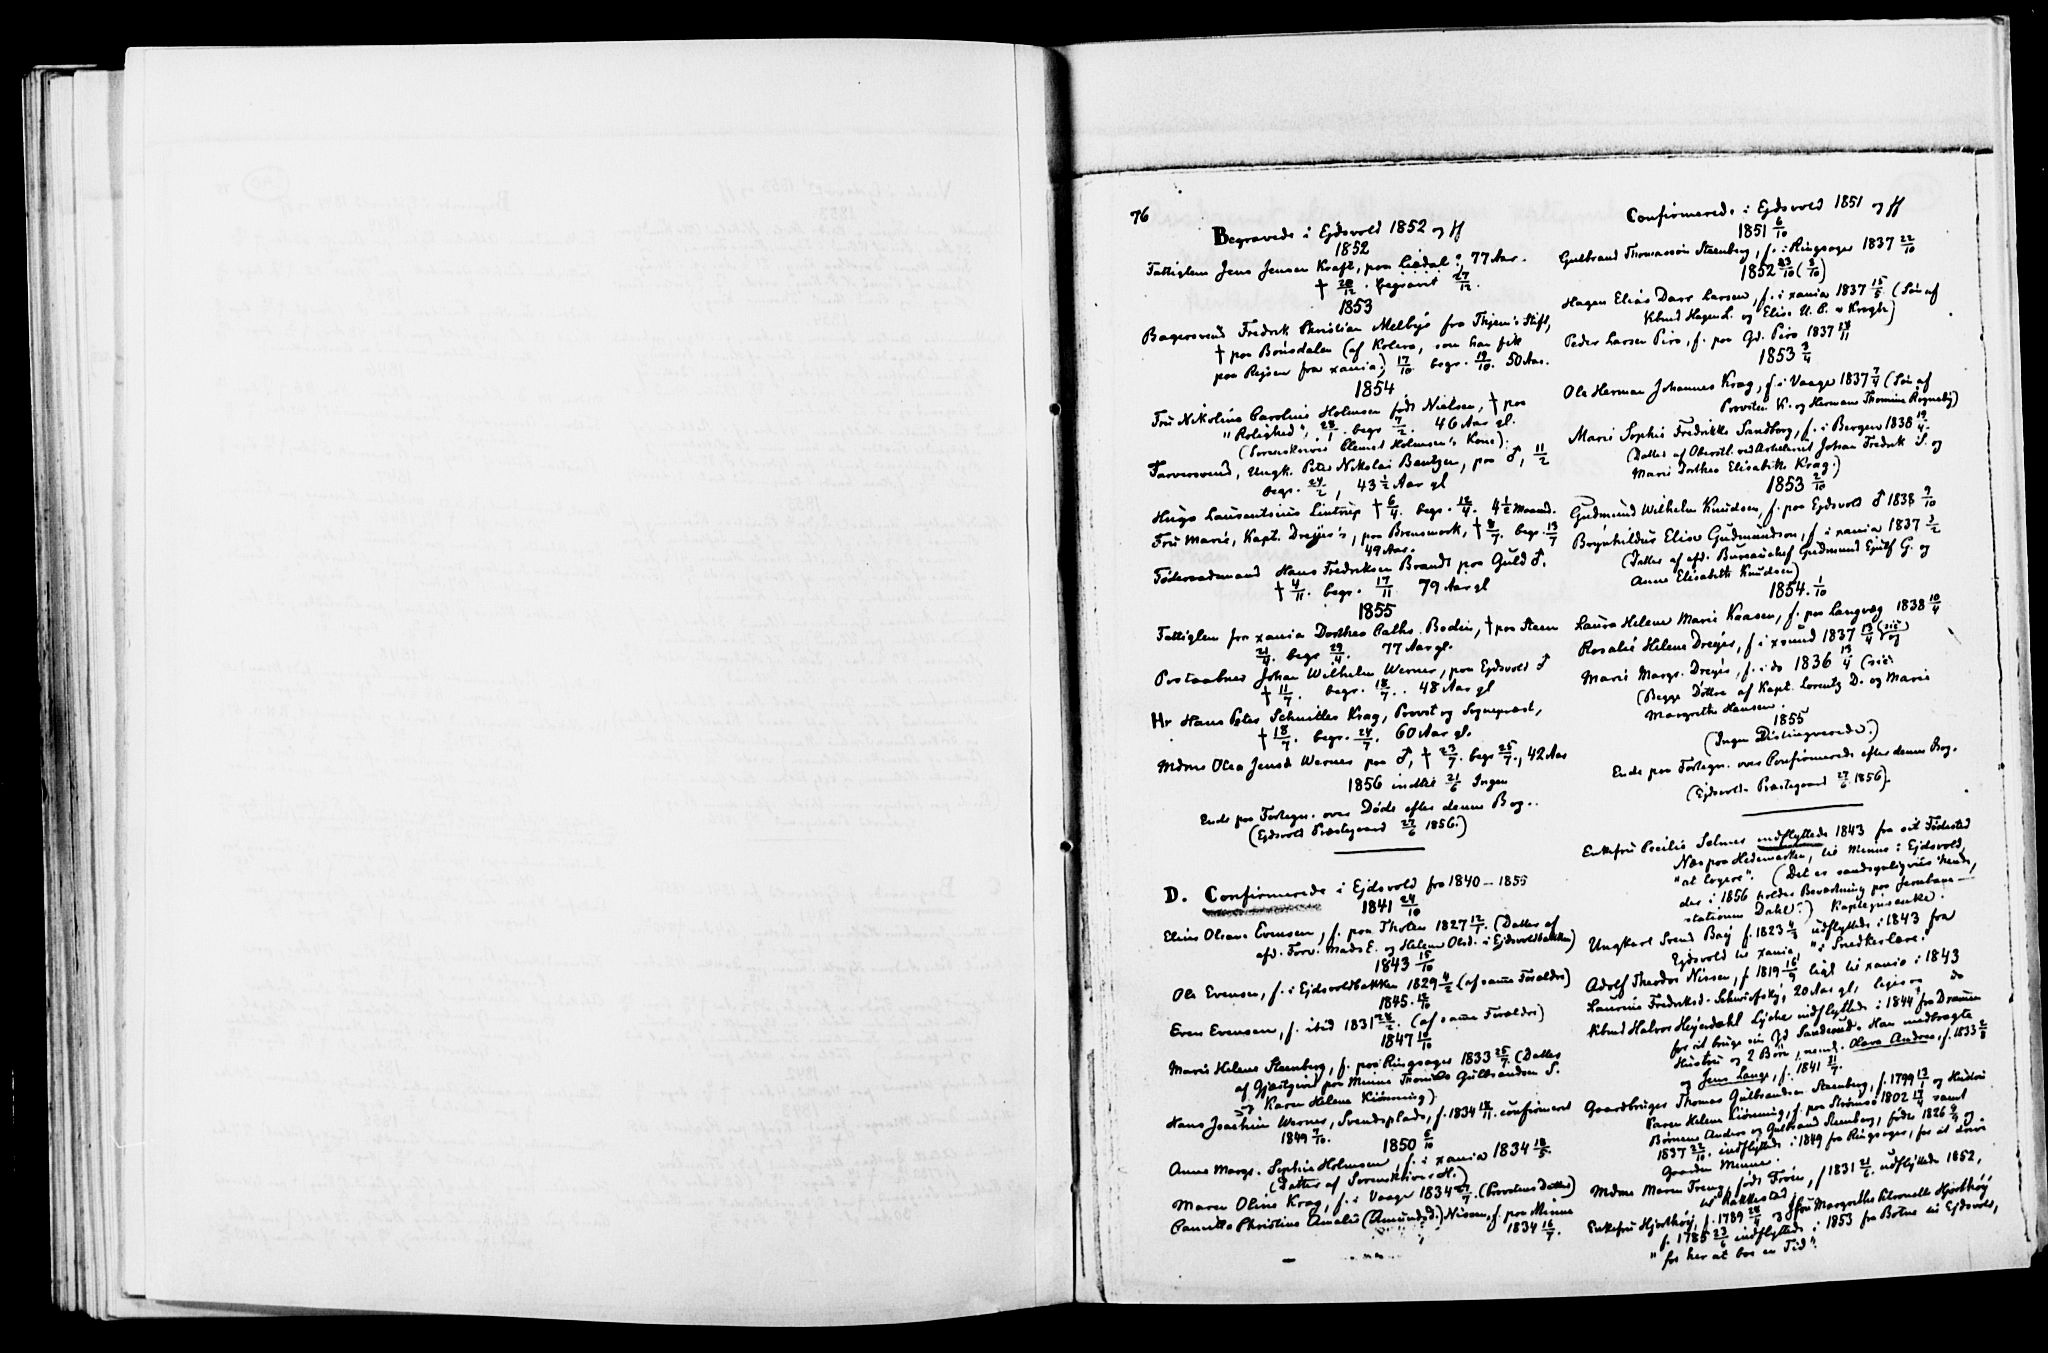 76
Begravede i Ejdsvold 1852 og ff
1852
Fattiglem Jens Jensen Kraft, paa Lisdal?, 77 Aar.
† 20/12. begravet 27/12.
1853
Bagersvend Fredrik Christian Melbye fra Thjem's Stift,
† paa Bönsdalen (af Kolera, som han fik
paa Rejsen fra xania,) 17/10. begr. 19/10. 50 Aar.
1854
Fru Nikoline Caroline Holmsen född Nielsen, † paa
"Rolighed", 28/1. begr 7/2. 46 Aar gl.
(Sorenskriver Clemet Holmsen's Kone).
Farversvend, Ungk. Peter Nikolai Bentzen, paa ♂, 11/2
begr. 24/2, 43 1/2 Aar gl
Hugo Laurentsius Lintrup † 6/4. begr. 12/4. 4 1/2 Maaned.
Fru Marie, Kapt. Dreyer's, paa Brensmork, † 8/7. begr. 13/7
49 Aar.
Föderaadsmand Hans Fredriksen Brandt paa Guld ♂.
† 4/11. begr. 17/11 79 Aar gl
1855
Fattiglem fra xania Dorthea Cathr. Bodin, † paa Steen
21/4. begr 29/4. 77 Aar gl.
Postaabner Johan Wilhelm Werner, paa Ejdsvold ♂
† 11/7. begr. 18/7. 48 Aar gl
Hr Hans Peter Schnitler Krag, Provst og Sognepræst,
† 18/7. begr. 24/7. 60 Aar gl.
Mdme Olea Jensd Werner paa ♂, † 23/7. begr 25/7., 42 Aar
1856 indtil 21/6 Ingen
Ende paa Fortegn. over Döde efter denne Bog..
(Ejdsvold Præstegaard 27/6 1856.)
D. Confirmerede i Ejdsvold fra 1840 — 1855
1841 24/10
Eline Oleane Evensen, f. paa Tholen 1827 12/7. (Datter af
afd. Forv. Mads E. og Helene Olsd. i Ejdsvoldbakken)
1843 15/10
Ole Evensen, f. i Ejdsvoldbakken 1829 4/2 (af samme Foraldre)
1845. 12/10
Even Evensen, f. ibid 1831 28/2. (af samme Foraldre)
1847 10/10
Marie Helene Steenberg, f. paa Ringsager 1833 25/7 (Datter
af Gjæstgiver paa Minne Thomas Gulbrandsen S.
og Karen Helene Kiönning)
Hans Joachim Werner, Svendsplads, f. 1834 18/11. confirmeret
1849 7/10.
1850 6/10
Anne Margr. Sophie Holmsen, f. i xania 1834 18/5.
(Datter af Sorenskriver H.)
Maren Oline Krag, f. i Vaage 1834 27/7. (Provstens Datter)
Camilla Christine Amalie (Amundsd.) Nissen, f. paa Minne
1834 16/7.
Confirmerede i Ejdsvold 1851 og ff
1851 6/10
Gulbrand Thomassön Steenberg, f. i Ringsager 1837 22/10
1852 23/10 (3/10)
Hagen Elias Darr Larsen, f. i xania 1837 15/5. (Sön af
Kbmd Hagen L. og Elise U. C. v Krogh)
Peder Larsen Piro, f. paa Gd. Piro 1837 24/11
1853 3/4
Ole Herman Johannes Krag, f. i Vaage 1837 7/4 (Sön af
Provsten K. og Hermana Thomine Rognebÿ)
Marie Sophie Fredrikke Sandborg, f. i Bergen 1838 19/4.
(Datter af Oberstl. ved Artilleriet Johan Fredrik S. og
Marie Dorthea Elisabeth Krag.)
1853 2/10
Gudmund Wilhelm Knudsen, f. paa Ejdsvold ♂ 1838 9/10
Brynhildur Elise Gudmundson, f. i xania 1837 3/2
(Datter af afd. Bureauchef Gudmund Ejulf G. og
Anne Elisabeth Knudsen)
1854. 1/10
Laura Helene Marie Kaasen, f. paa Langvæg 1838 10/4
Rosalie Helene Dreyer, f. i xsund 1837 13/4 (sic) og
Marie Margr. Dreyer, f. i do 1836 13/4 (sic)
(Begge Döttre af Kapt. Lorentz D. og Marie
Margrethe Hansen.
1855
(Ingen Distingverede.)
Ende paa Fortegn. over Confirmerede efter denne Bog.
(Ejdsvold Præstegaard 27/6 1856).
Enkefru Cecilie Selmer indflyttede 1843 fra sit Födested
Næs paa Hedemarken, til Minne i Ejdsvold,
"at logere". (Det er sandsynligviis hende,
der i 1856 holder Bevertning paa Jernbane-
stationen Dahl.) Kapteynsenke.
Ungkarl Svend Baÿ f. 1823 6/3 udflyttede i 1843 fra
Ejdsvold til xania "i Snedkerlære."
Adolf Theodor Nissen, f 1819 16/9 ligel til xania i 1843
Laurine Fredriksd. Schwiofskÿ, 20 Aar gl, ligesaa do
Kbmd Halvor Heyerdahl Lÿche indflyttede i 1844 fra Dramen
for at bruge sin Gd Sanderud. Han medbragte
Hustru og 2 Börn, nemd. Olava Andrea, f. 1833 2/8
og Jens Lange, f. 1841 21/7.
Gaardbruger Thomas Gulbrandsen Steenberg, f. 1799 13/1 og Hustru
Karen Helene Kiönning, f. paa Strömsö 1802 17/4 samt
Börnene Anders og Gulbrand Steenberg, födte 1826 9/9 og
1837 22/10. indflyttede i 1849 fra Ringsager, for at drive
Gaarden Minne.
Mdme Maren Treng, född Froen, f 1831 21/6. udflyttede 1852,
til Rakkestad.
Enkefru Hjorthöy, f. 1789 28/4 og Jfru Margrethe Petronelle Hjorthöy,
f. 1785 23/6 indflyttede i 1853 fra Botne til Ejdsvold,
"for her at boe en Tid".